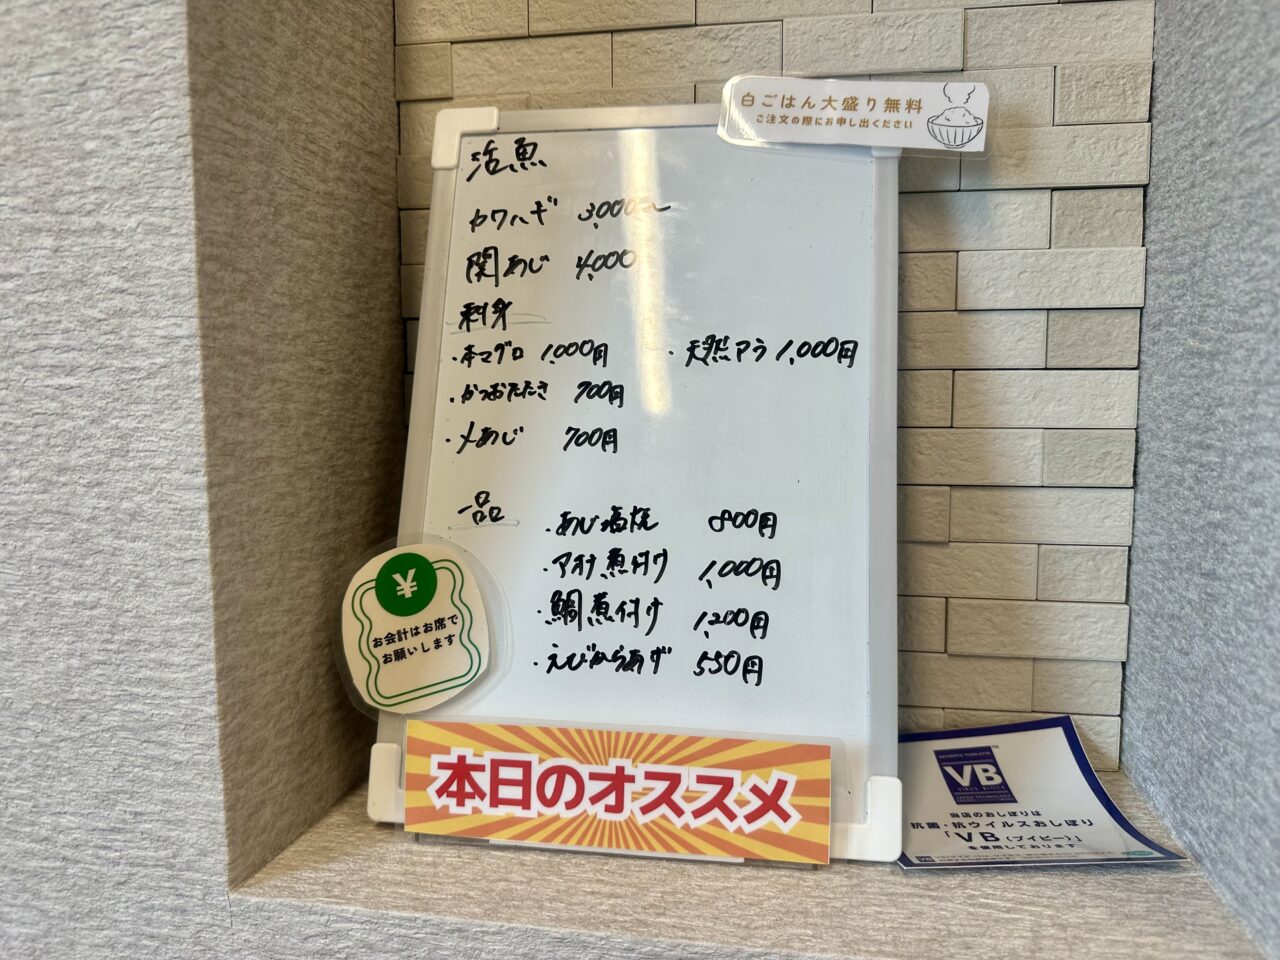 白ごはん大盛り無料
ご注文の際にお申し出ください
活魚
カワハギ 3,000~
関あじ 4,000
刺身
・本マグロ 1,000円
・天然アラ 1,000円
・かつおたたき 700円
・〆あじ 700円
一品
・あじ塩焼 800円
・アオナ煮付け 1,000円
・鯛煮付け 1,200円
・えびからあげ 550円
¥
お会計はお席で
お願いします
本日のオススメ
VB
VIRUS BLOCK
JAPAN TECHNOLOGY
当店のおしぼりは
抗菌・抗ウイルスおしぼり
「VB(ブイビー)」
を使用しております